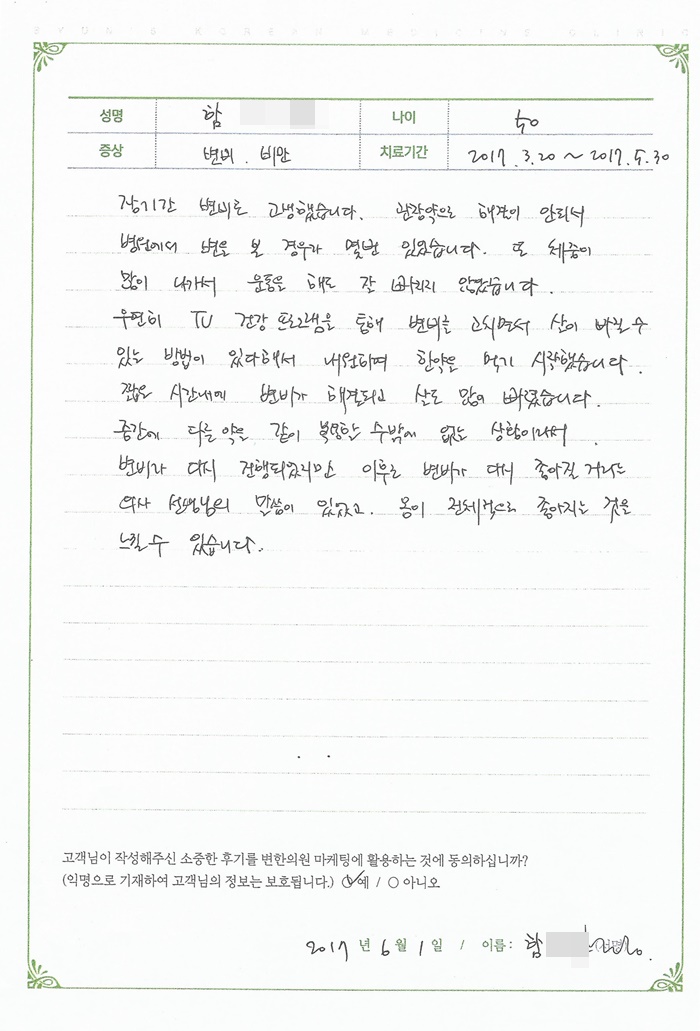 BYUN'S KOREAN MEDICINE CLINIC
성명 함 나이 50
증상 변비. 비만 치료기간 2017. 3.20 ~ 2017. 5. 30
장기간 변비로 고생했습니다. 관장약으로 해결이 안되서
병원에서 변을 본 경우가 몇번 있었습니다. 또 체중이
많이 나가서 운동을 해도 잘 빠지지 않았습니다.
우연히 TV 건강 프로그램을 통해 변비를 고치면서 살이 빠질 수
있는 방법이 있다해서 내원하며 한약을 먹기 시작했습니다.
짧은 시간내에 변비가 해결되고 살도 많이 빠졌습니다.
중간에 다른 약을 같이 복용할 수밖에 없는 상황이라서
변비가 다시 진행되었지만 이후로 변비가 다시 좋아질 거라는
의사 선생님의 말씀이 있었고. 몸이 전체적으로 좋아지는 것을
느낄 수 있습니다.
고객님이 작성해주신 소중한 후기를 변한의원 마케팅에 활용하는 것에 동의하십니까?
(익명으로 기재하여 고객님의 정보는 보호됩니다.) 예 / 아니오
2017 년 6 월 1 일 / 이름 : 함 (서명)